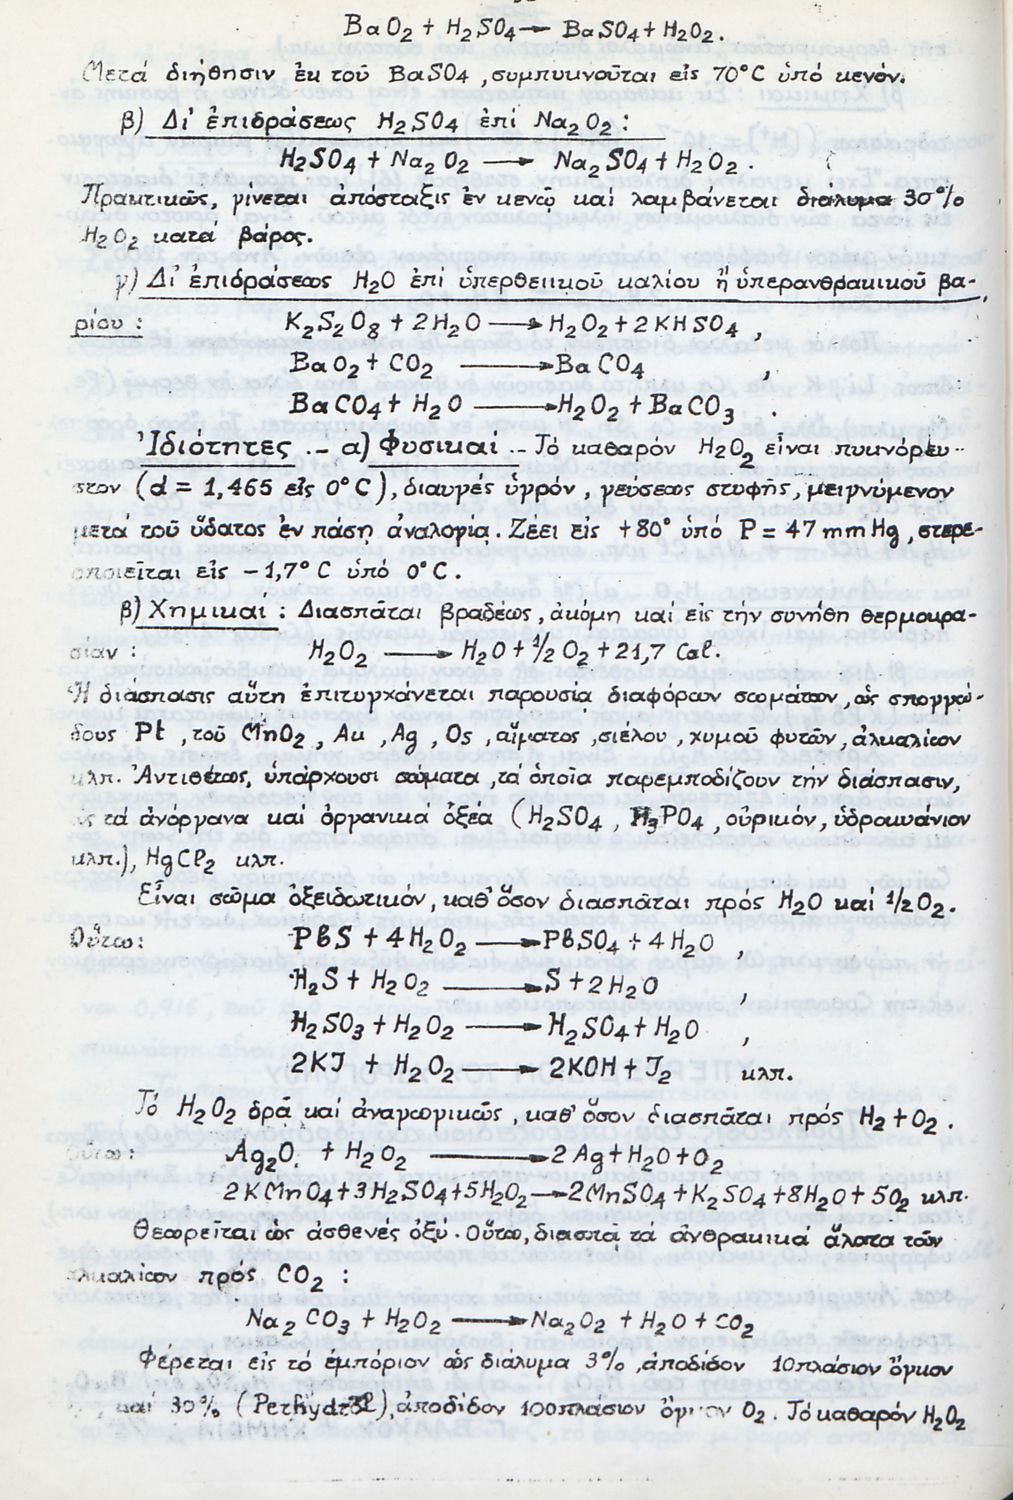 BaO₂ + H₂SO₄ → BaSO₄ + H₂O₂.
Μετά διήθησιν ἐκ τοῦ BaSO₄, συμπυκνοῦται εἰς 70°C ὑπό κενόν.
β) Δι' ἐπιδράσεως H₂SO₄ ἐπί Na₂O₂:
H₂SO₄ + Na₂O₂ → Na₂SO₄ + H₂O₂.
Πρακτικῶς, γίνεται ἀπόσταξις ἐν κενῷ καί λαμβάνεται διάλυμα 30%
H₂O₂ κατά βάρος.
γ) Δι' ἐπιδράσεως H₂O ἐπί ὑπερθειικοῦ καλίου ἤ ὑπερανθρακικοῦ βα-
ρίου: K₂S₂O₈ + 2H₂O → H₂O₂ + 2KHSO₄,
BaO₂ + CO₂ → BaCO₄,
BaCO₄ + H₂O → H₂O₂ + BaCO₃.
Ἰδιότητες.- α) Φυσικαί.- Τό καθαρόν H₂O₂ εἶναι πυκνόρευ-
στον (d = 1,465 εἰς 0°C), διαυγές ὑγρόν, γεύσεως στυφῆς, μειγνύμενον
μετά τοῦ ὕδατος ἐν πάσῃ ἀναλογίᾳ. Ζέει εἰς +80° ὑπό P = 47 mm Hg, στερε-
οποιεῖται εἰς -1,7°C ὑπό 0°C.
β) Χημικαί: Διασπᾶται βραδέως, ἀκόμη καί εἰς τήν συνήθη θερμοκρα-
σίαν: H₂O₂ → H₂O + ½ O₂ + 21,7 Cal.
Ἡ διάσπασις αὕτη ἐπιτυγχάνεται παρουσίᾳ διαφόρων σωμάτων, ὡς σπογγώ-
δους Pt, τοῦ MnO₂, Au, Ag, Os, αἵματος, σιέλου, χυμοῦ φυτῶν, ἀλκαλίων
κλπ. Ἀντιθέτως, ὑπάρχουσι σώματα, τά ὁποῖα παρεμποδίζουν τήν διάσπασιν,
ὡς τά ἀνόργανα καί ὀργανικά ὀξέα (H₂SO₄, H₃PO₄, οὐρικόν, ὑδροκυάνιον
κλπ.), HgCl₂ κλπ.
Εἶναι σῶμα ὀξειδωτικόν, καθ' ὅσον διασπᾶται πρός H₂O καί 1/2 O₂.
Οὕτω: PbS + 4H₂O₂ → PbSO₄ + 4H₂O,
H₂S + H₂O₂ → S + 2H₂O,
H₂SO₃ + H₂O₂ → H₂SO₄ + H₂O,
2KJ + H₂O₂ → 2KOH + J₂ κλπ.
Τό H₂O₂ δρᾷ καί ἀναγωγικῶς, καθ' ὅσον διασπᾶται πρός H₂ + O₂.
Οὕτω: Ag₂O + H₂O₂ → 2Ag + H₂O + O₂
2KMnO₄ + 3H₂SO₄ + 5H₂O₂ → 2MnSO₄ + K₂SO₄ + 8H₂O + 5O₂ κλπ.
Θεωρεῖται ὡς ἀσθενές ὀξύ. Οὕτω, διασπᾷ τά ἀνθρακικά ἅλατα τῶν
ἀλκαλίων πρός CO₂:
Na₂CO₃ + H₂O₂ → Na₂O₂ + H₂O + CO₂
Φέρεται εἰς τό ἐμπόριον ὡς διάλυμα 3%, ἀποδίδον 10πλάσιον ὄγκον
καί 30% (Perhydrol), ἀποδίδον 100πλάσιον ὄγκον O₂. Τό καθαρόν H₂O₂